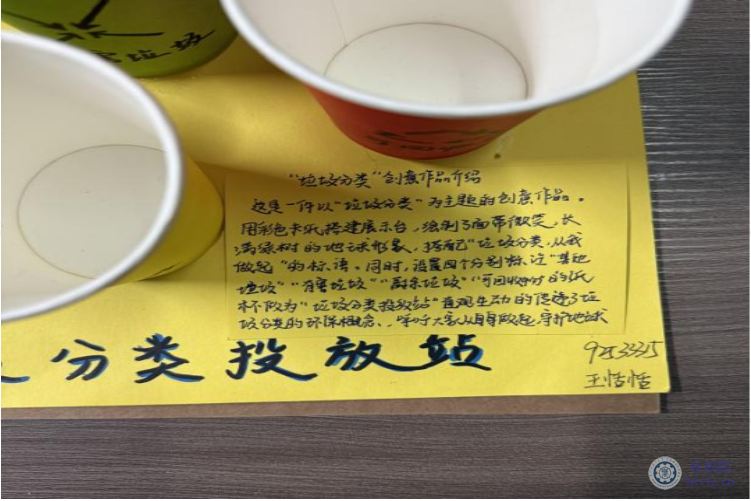 圾
"垃圾分类"创意作品介绍
这是一件以"垃圾分类"为主题的创意作品。
用彩色卡纸搭建展示台，绘制了面带微笑、长
满绿树的地球形象，搭配"垃圾分类，从我
做起"的标语。同时，设置四个分别标注"其他
垃圾""有害垃圾""厨余垃圾""可回收物"的纸
杯做为"垃圾分类投放站"直观生动的传递了垃
圾分类的环保概念，呼吁大家从自身做起，守护地球
分类投放站
王恬恬